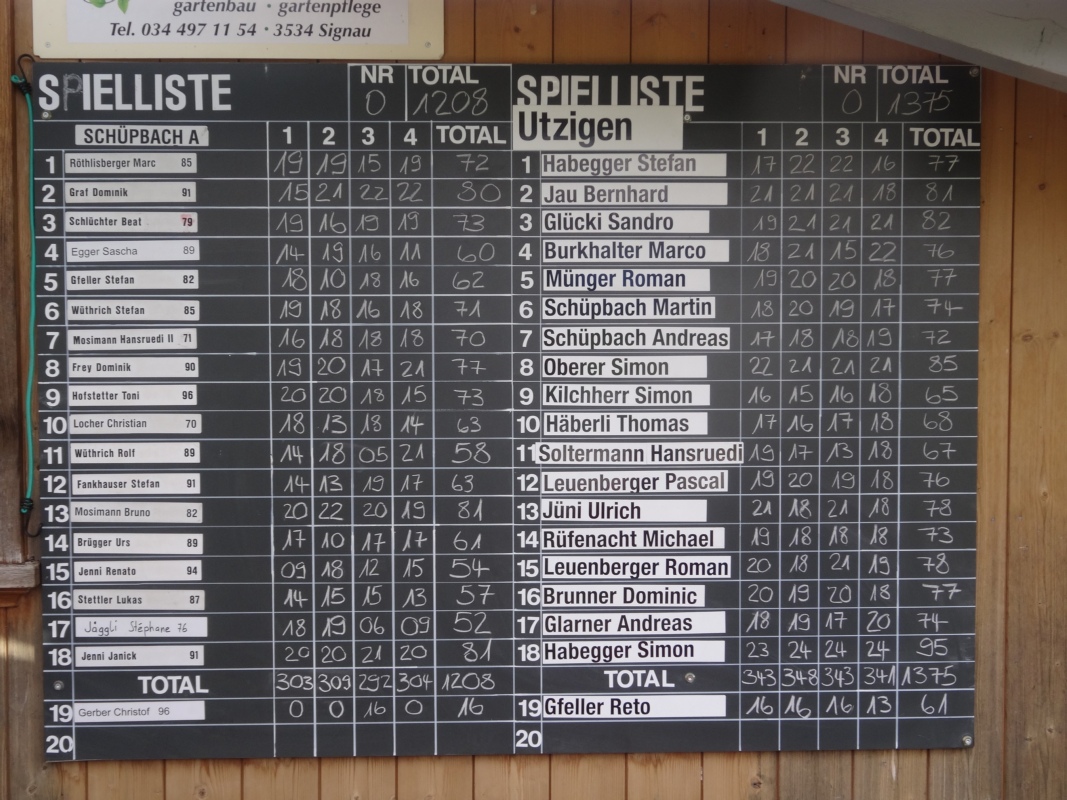 gartenbau · gartenpflege
Tel. 034 497 11 54 · 3534 Signau
SPIELLISTE NR 0 TOTAL 1208
SCHÜPBACH A 1 2 3 4 TOTAL
1 Röthlisberger Marc 85 19 19 15 19 72
2 Graf Dominik 91 15 21 22 22 80
3 Schlüchter Beat 79 19 16 19 19 73
4 Egger Sascha 89 14 19 16 11 60
5 Gfeller Stefan 82 18 10 18 16 62
6 Wüthrich Stefan 85 19 18 16 18 71
7 Mosimann Hansruedi II 71 16 18 18 18 70
8 Frey Dominik 90 19 20 17 21 77
9 Hofstetter Toni 96 20 20 18 15 73
10 Locher Christian 70 18 13 18 14 63
11 Wüthrich Rolf 89 14 18 05 21 58
12 Fankhauser Stefan 91 14 13 19 17 63
13 Mosimann Bruno 82 20 22 20 19 81
14 Brügger Urs 89 17 10 17 17 61
15 Jenni Renato 94 09 18 12 15 54
16 Stettler Lukas 87 14 15 15 13 57
17 Jäggli Stéphane 76 18 19 06 09 52
18 Jenni Janick 91 20 20 21 20 81
TOTAL 303 309 292 304 1208
19 Gerber Christof 96 0 0 16 0 16
20
SPIELLISTE NR 0 TOTAL 1375
Utzigen 1 2 3 4 TOTAL
1 Habegger Stefan 17 22 22 16 77
2 Jau Bernhard 21 21 21 18 81
3 Glücki Sandro 19 21 21 21 82
4 Burkhalter Marco 18 21 15 22 76
5 Münger Roman 19 20 20 18 77
6 Schüpbach Martin 18 20 19 17 74
7 Schüpbach Andreas 17 18 18 19 72
8 Oberer Simon 22 21 21 21 85
9 Kilchherr Simon 16 15 16 18 65
10 Häberli Thomas 17 16 17 18 68
11 Soltermann Hansruedi 19 17 13 18 67
12 Leuenberger Pascal 19 20 19 18 76
13 Jüni Ulrich 21 18 21 18 78
14 Rüfenacht Michael 19 18 18 18 73
15 Leuenberger Roman 20 18 21 19 78
16 Brunner Dominic 20 19 20 18 77
17 Glarner Andreas 18 19 17 20 74
18 Habegger Simon 23 24 24 24 95
TOTAL 343 348 343 341 1375
19 Gfeller Reto 16 16 16 13 61
20